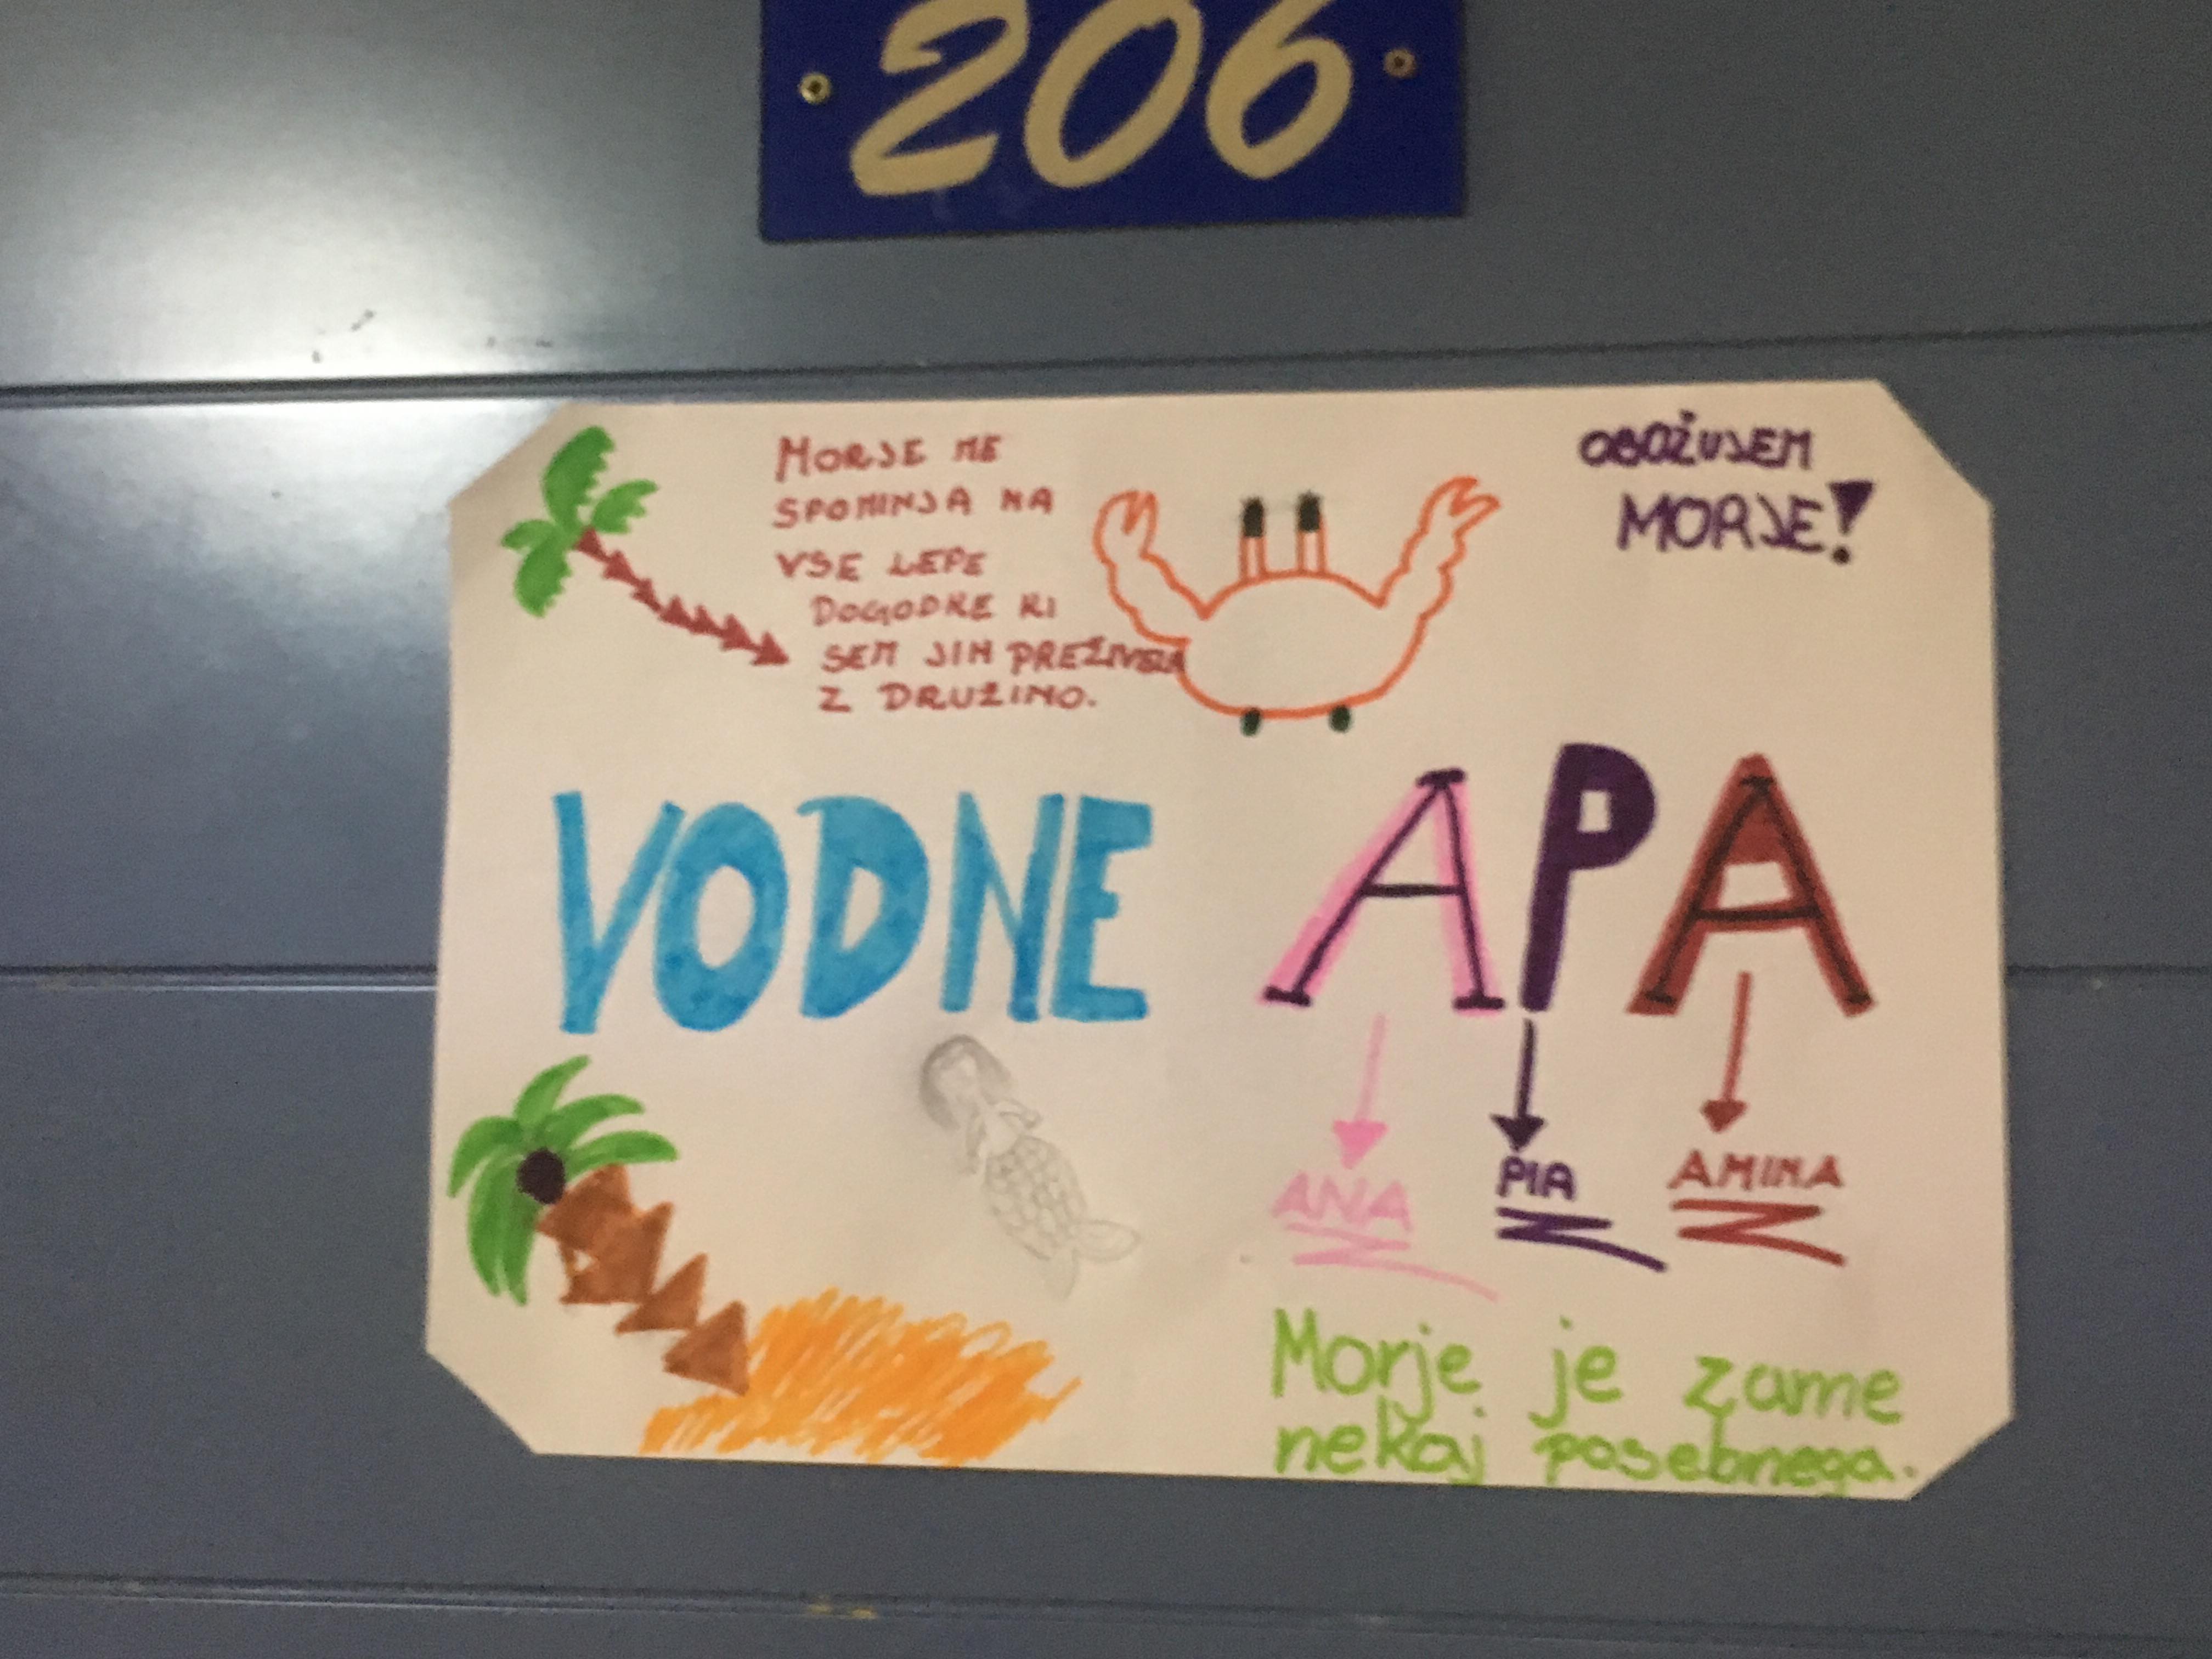 206
MORJE ME
SPOMINJA NA
VSE LEPE
DOGODKE KI
SEM JIH PREŽIVELA
Z DRUŽINO.
OBOŽUJEM
MORJE!
VODNE APA
ANA
PIA
AMINA
Morje je zame
nekaj posebnega.